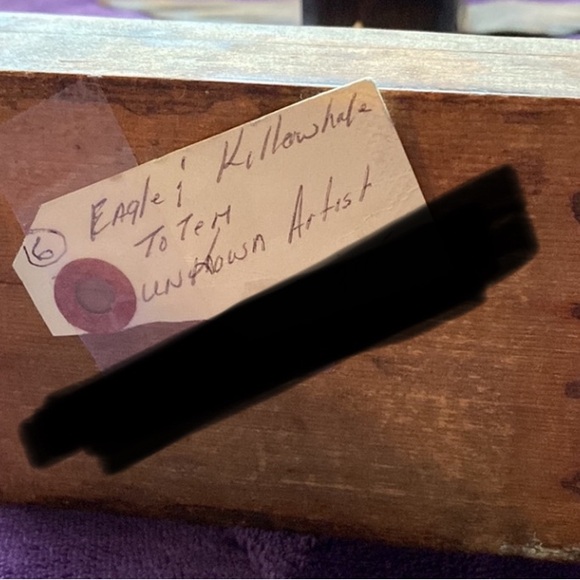 6
Eagle & Killerwhale
Totem
unknown Artist